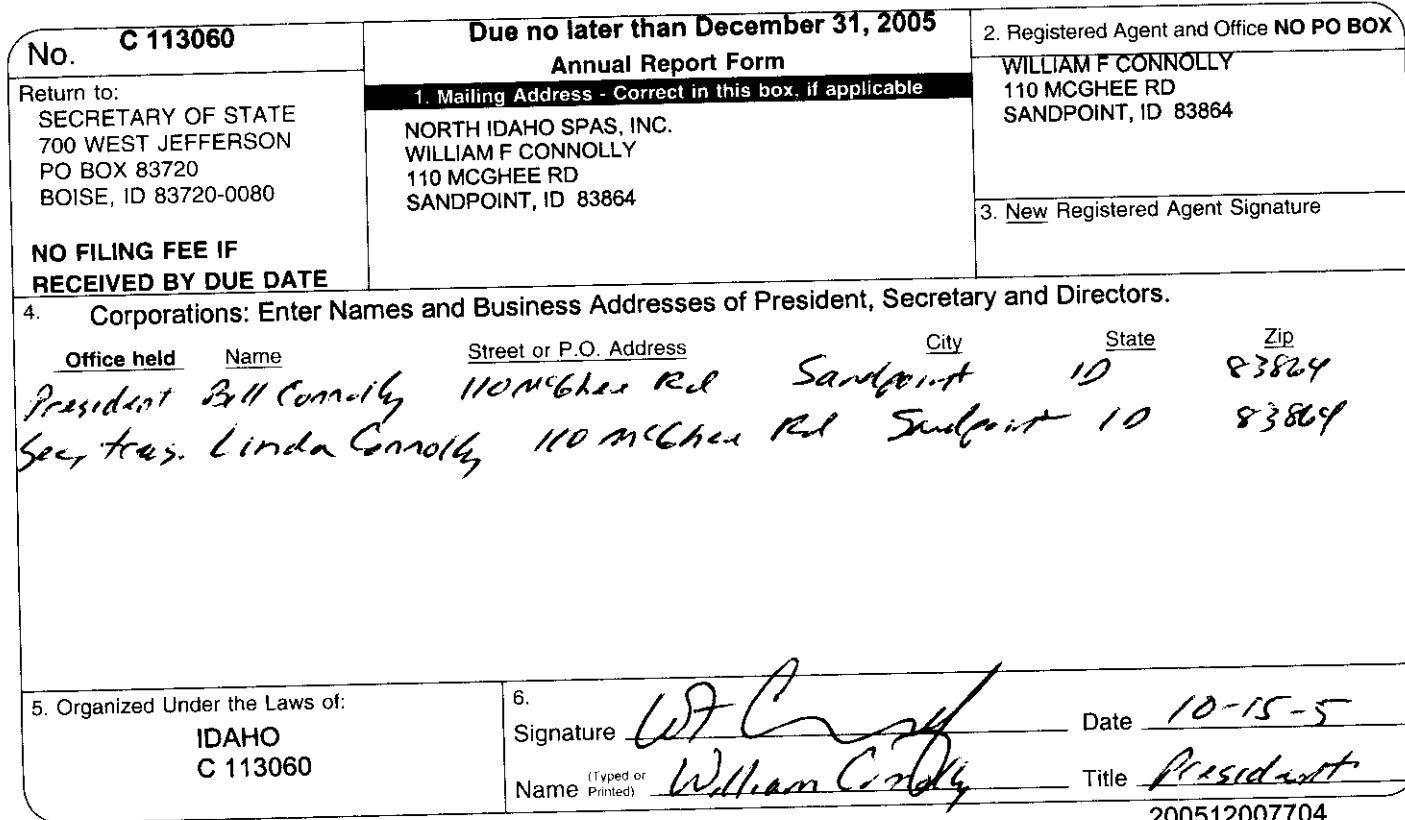 No. C 113060
Return to:
SECRETARY OF STATE
700 WEST JEFFERSON
PO BOX 83720
BOISE, ID 83720-0080
NO FILING FEE IF
RECEIVED BY DUE DATE
Due no later than December 31, 2005
Annual Report Form
1. Mailing Address - Correct in this box, if applicable
NORTH IDAHO SPAS, INC.
WILLIAM F CONNOLLY
110 MCGHEE RD
SANDPOINT, ID 83864
2. Registered Agent and Office NO PO BOX
WILLIAM F CONNOLLY
110 MCGHEE RD
SANDPOINT, ID 83864
3. New Registered Agent Signature
4. Corporations: Enter Names and Business Addresses of President, Secretary and Directors.
Office held Name Street or P.O. Address City State Zip
President Bill Connolly 110 McGhee Rd Sandpoint ID 83864
Sec, treas. Linda Connolly 110 McGhee Rd Sandpoint ID 83864
5. Organized Under the Laws of:
IDAHO
C 113060
6.
Signature Date 10-15-5
Name (Typed or Printed) William Connolly Title President
200512007704